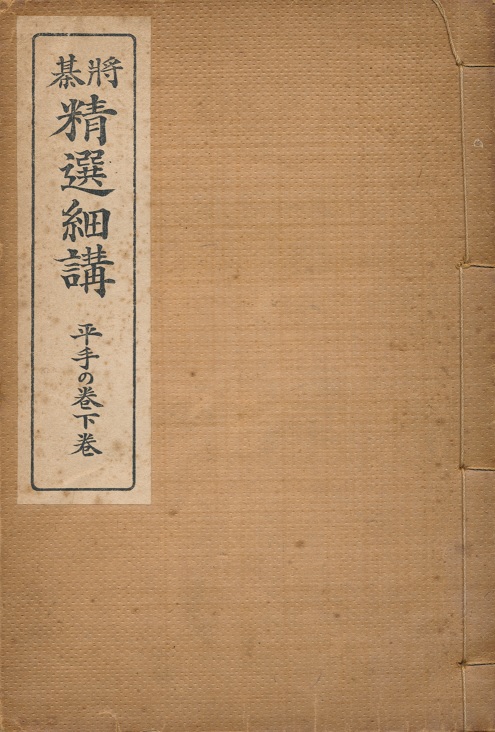 將棊
精選細講
平手の卷下卷